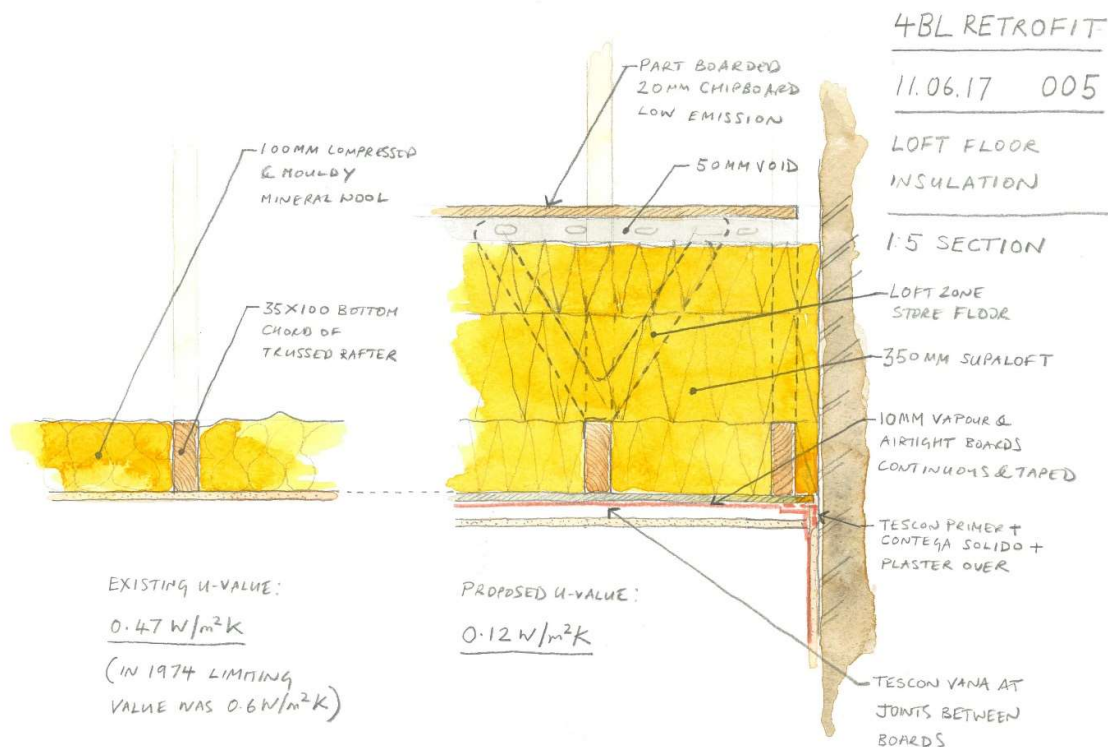 4BL RETROFIT
11.06.17 005
LOFT FLOOR
INSULATION
1:5 SECTION
PART BOARDED
20MM CHIPBOARD
LOW EMISSION
50MM VOID
100MM COMPRESSED
& MOULDY
MINERAL WOOL
35X100 BOTTOM
CHORD OF
TRUSSED RAFTER
LOFT ZONE
STORE FLOOR
350MM SUPALOFT
10MM VAPOUR &
AIRTIGHT BOARDS
CONTINUOUS & TAPED
TESCON PRIMER +
CONTEGA SOLIDO +
PLASTER OVER
EXISTING U-VALUE:
0.47 W/m²K
(IN 1974 LIMITING
VALUE WAS 0.6 W/m²K)
PROPOSED U-VALUE:
0.12 W/m²K
TESCON VANA AT
JOINTS BETWEEN
BOARDS